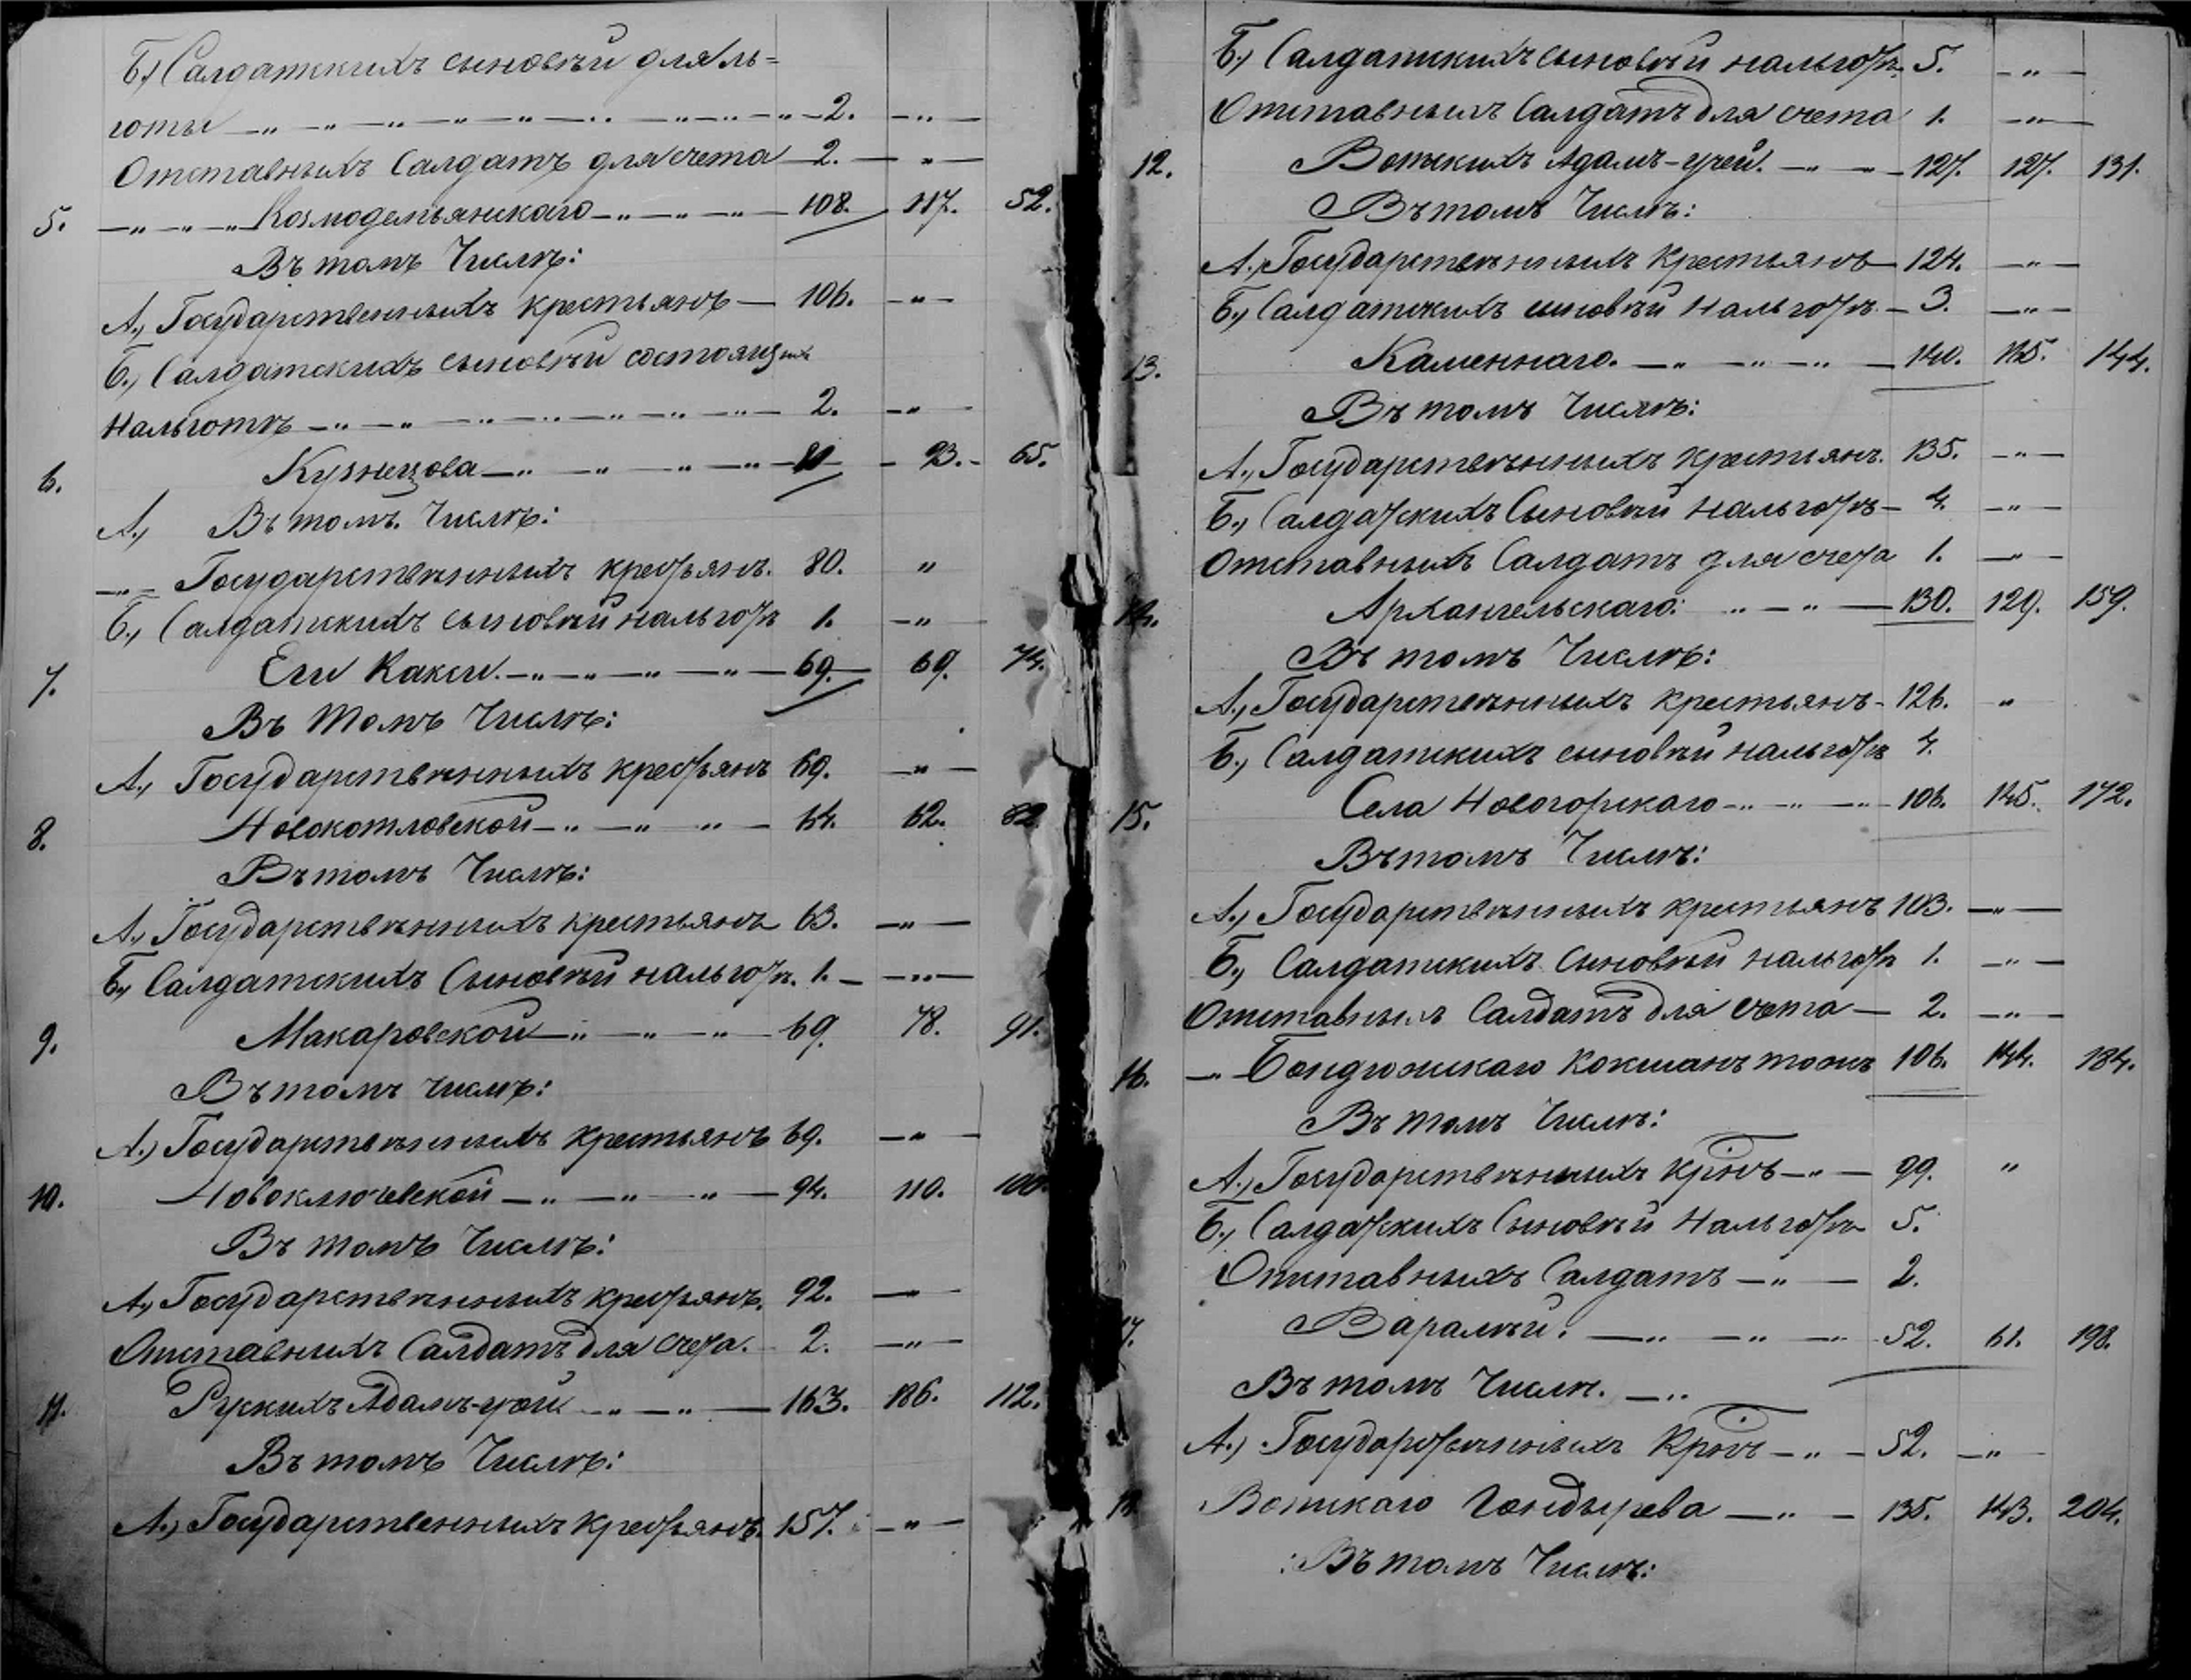 Б.) Салдатскихъ сыновѣй для ль=
готы —„—„—„—„—„—„—„—„— 2. —„—
Отставныхъ Салдатъ для счета — 2. —„—
5. —„—„—„— Козмодемьянскаго —„—„—„— 108. 117. 52.
Въ томъ Числѣ:
А., Государственныхъ крестьянъ — 106. —„—
Б., Салдатскихъ сыновѣй состоящихъ
Нальготѣ —„—„—„—„—„—„—„— 2. —„—
6. Кузнецова —„—„—„—„— 81 — 93. — 65.
А., Въ томъ Числѣ:
—„— Государственныхъ крестьянъ. 80. „
Б., Салдатскихъ сыновѣй нальготѣ 1. —„—
7. Еги Какси. —„—„—„—„— 69. 69. 74.
Въ томъ Числѣ:
А., Государственныхъ крестьянъ 69. —„—
8. Новокотловской —„—„—„— 64. 62. 82
Въ томъ Числѣ:
А., Государственныхъ крестьянъ 63. —„—
Б., Салдатскихъ Сыновѣй нальготѣ. 1. — —„—
9. Макаровской —„—„—„— 69. 78. 91.
Въ томъ числѣ:
А.) Государственныхъ крестьянъ 69. —„—
10. Новоключевской —„—„—„— 94. 110. 100.
Въ томъ Числѣ:
А., Государственныхъ крестьянъ. 92. —„—
Отставныхъ Салдатъ для Счета. 2. —„—
11. Рускихъ Адамъ-учи —„—„— 163. 186. 112.
Въ томъ Числѣ:
А., Государственныхъ крестьянъ. 157. —„—
Б., Салдатскихъ сыновѣй нальготѣ. 5. —„—
Отставныхъ Салдатъ для счета 1. —„—
12. Вотскихъ Адамъ-учей. —„—„— 127. 127. 131.
Въ томъ Числѣ:
А., Государственныхъ крестьянъ — 124. —„—
Б., Салдатскихъ сыновѣй Нальготѣ — 3. —„—
13. Каменнаго. —„—„—„— 140. 145. 144.
Въ томъ Числѣ:
А., Государственныхъ крестьянъ. 135. —„—
Б., Салдатскихъ Сыновѣй Нальготѣ — 4. —„—
Отставныхъ Салдатъ для счета 1. —„—
14. Архангельскаго: „—„— 130. 129. 159.
Въ томъ Числѣ:
А., Государственныхъ крестьянъ — 126. „
Б., Салдатскихъ сыновѣй нальготѣ 4.
15. Села Новогорскаго —„—„—„— 106. 145. 172.
Въ томъ Числѣ:
А., Государственныхъ крестьянъ 103. —„—
Б., Салдатскихъ Сыновѣй нальготѣ 1. —„—
Отставныхъ Салдатъ для счета — 2. —„—
16. —„— Бондюжскаго Кокшанъ тожъ 106. 144. 184.
Въ томъ Числѣ:
А., Государственныхъ крнъ —„— 99. „
Б., Салдатскихъ Сыновѣй Нальготѣ 5.
Отставныхъ Салдатъ —„— 2.
17. Варалѣй. —„—„—„— 52. 61. 198.
Въ томъ Числѣ. —„
А.) Государственныхъ Крнъ —„— 52. —„
18. Вотскаго Гондырева —„— 135. 143. 204.
Въ томъ Числѣ: